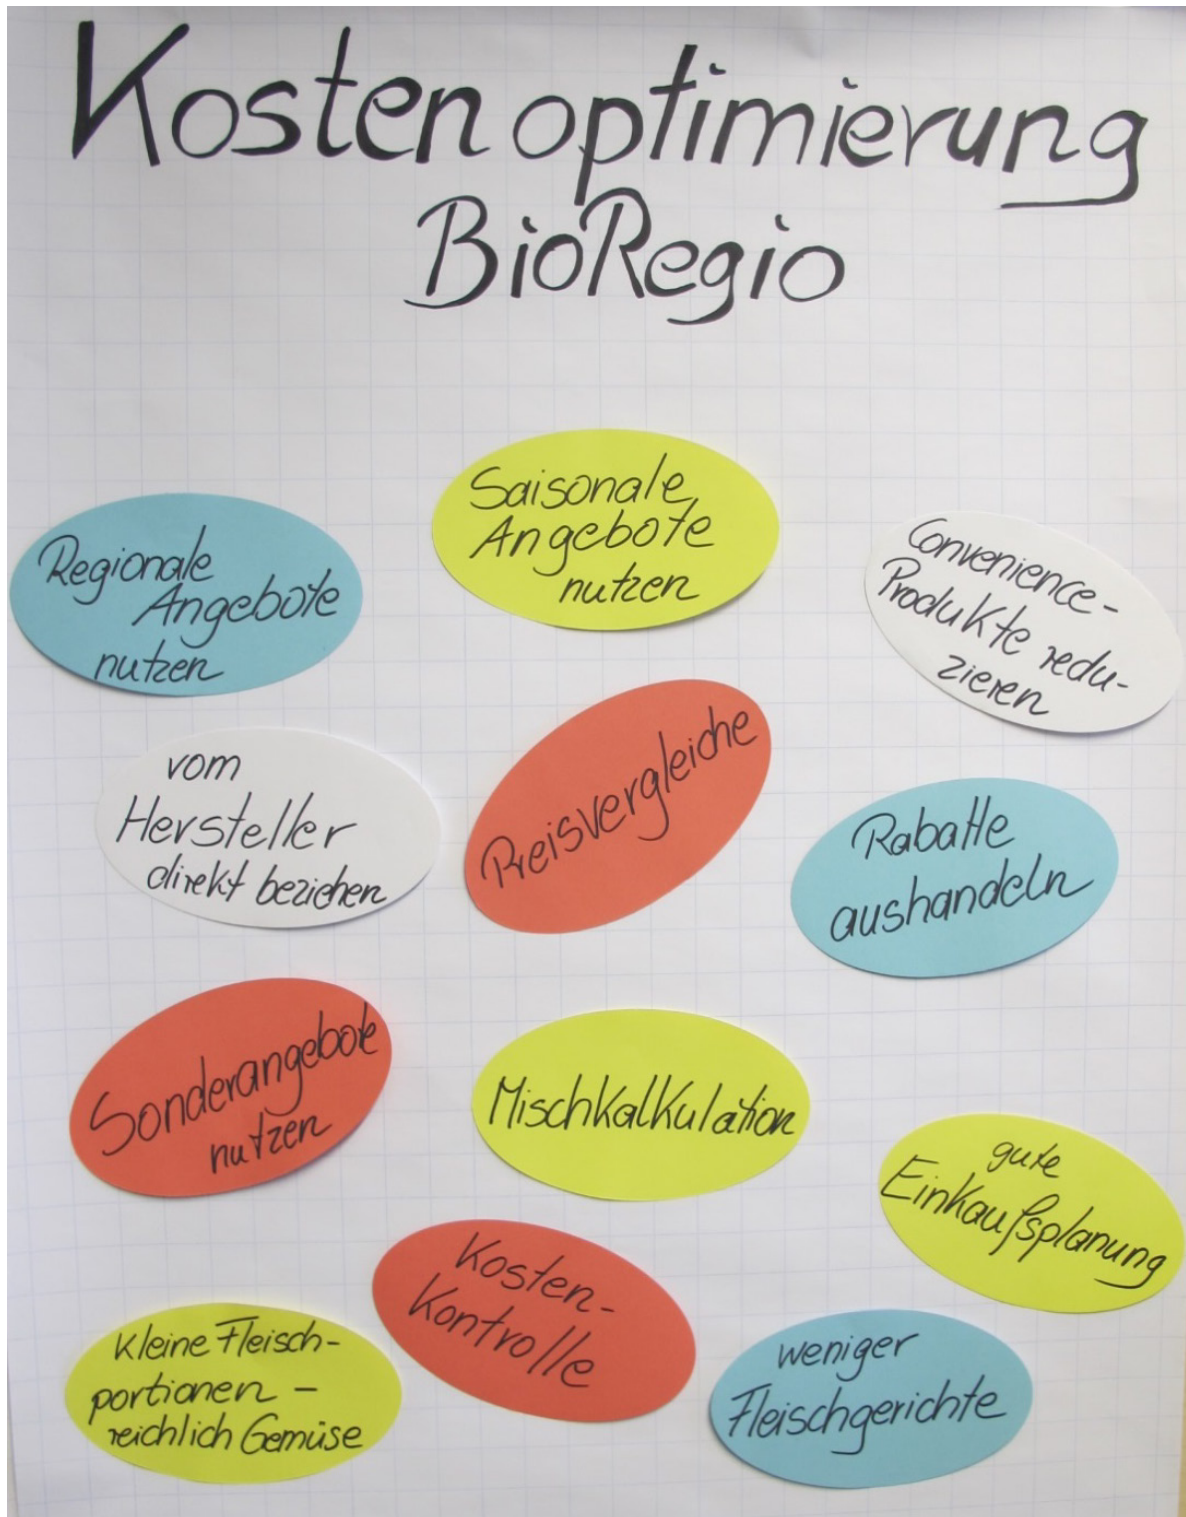 Kostenoptimierung
BioRegio
Regionale
Angebote
nutzen
Saisonale
Angebote
nutzen
Convenience-
Produkte redu-
zieren
vom
Hersteller
direkt beziehen
Preisvergleiche
Rabatte
aushandeln
Sonderangebote
nutzen
Mischkalkulation
gute
Einkaufsplanung
Kosten-
Kontrolle
kleine Fleisch-
portionen -
reichlich Gemüse
weniger
Fleischgerichte